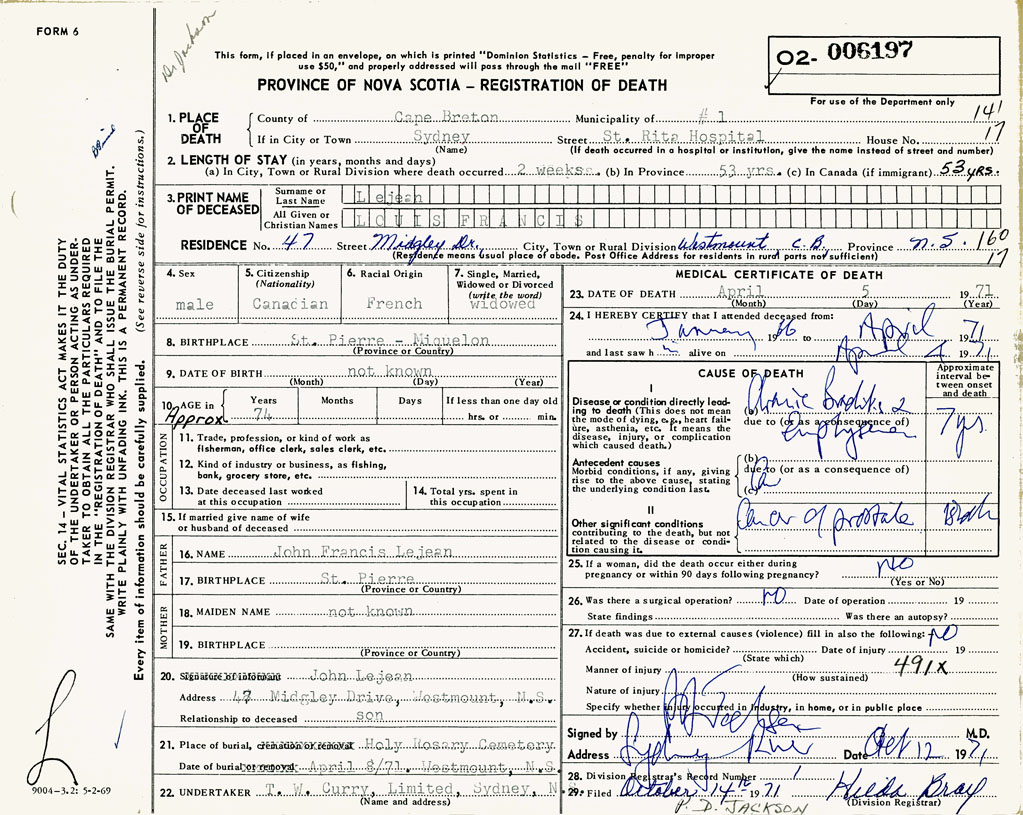 FORM 6
Dr Jackson
This form, if placed in an envelope, on which is printed "Dominion Statistics – Free, penalty for improper
use $50," and properly addressed will pass through the mail "FREE"
PROVINCE OF NOVA SCOTIA – REGISTRATION OF DEATH
02- 006197
For use of the Department only
141
17
1. PLACE OF DEATH
County of Cape Breton Municipality of # 1
If in City or Town Sydney Street St. Rita Hospital House No.
(Name) (If death occurred in a hospital or institution, give the name instead of street and number)
2. LENGTH OF STAY (in years, months and days)
(a) In City, Town or Rural Division where death occurred 2 weeks. (b) In Province 53 yrs. (c) In Canada (if immigrant) 53 YRS.
3. PRINT NAME OF DECEASED
Surname or Last Name Lejean
All Given or Christian Names LOUIS FRANCIS
RESIDENCE No. 47 Street Midgley Dr. City, Town or Rural Division Westmount, C.B. Province N.S. 160
17
(Residence means usual place of abode. Post Office Address for residents in rural parts not sufficient)
4. Sex
male
5. Citizenship
(Nationality)
Canadian
6. Racial Origin
French
7. Single, Married,
Widowed or Divorced
(write the word)
widowed
8. BIRTHPLACE St. Pierre – Miquelon
(Province or Country)
9. DATE OF BIRTH not known
(Month) (Day) (Year)
10. AGE in Approx. Years 74 Months Days If less than one day old
hrs. or min.
OCCUPATION
11. Trade, profession, or kind of work as
fisherman, office clerk, sales clerk, etc.
12. Kind of industry or business, as fishing,
bank, grocery store, etc.
13. Date deceased last worked
at this occupation
14. Total yrs. spent in
this occupation
15. If married give name of wife
or husband of deceased
FATHER
16. NAME John Francis Lejean
17. BIRTHPLACE St. Pierre
(Province or Country)
MOTHER
18. MAIDEN NAME not known
19. BIRTHPLACE
(Province or Country)
20. Signature of informant John Lejean
Address 47 Midgley Drive, Westmount, N.S.
Relationship to deceased son
21. Place of burial, cremation or removal Holy Rosary Cemetery
Date of burial or removal April 8/71. Westmount, N.S.
22. UNDERTAKER T. W. Curry, Limited, Sydney, N
(Name and address)
MEDICAL CERTIFICATE OF DEATH
23. DATE OF DEATH April 5 1971
(Month) (Day) (Year)
24. I HEREBY CERTIFY that I attended deceased from:
January 1966 to April 1971
and last saw him alive on April 4 1971
CAUSE OF DEATH
Approximate interval between onset and death
I
Disease or condition directly leading to death (This does not mean the mode of dying, e.g., heart failure, asthenia, etc. It means the disease, injury, or complication which caused death.)
(a) Chronic Bronchitis &
due to (or as a consequence of)
Emphysema
7 yrs.
Antecedent causes
Morbid conditions, if any, giving rise to the above cause, stating the underlying condition last.
(b)
due to (or as a consequence of)
(c)
II
Other significant conditions contributing to the death, but not related to the disease or condition causing it.
Cancer of prostate
25. If a woman, did the death occur either during
pregnancy or within 90 days following pregnancy? NO
(Yes or No)
26. Was there a surgical operation? NO Date of operation 19
State findings Was there an autopsy?
27. If death was due to external causes (violence) fill in also the following: NO
Accident, suicide or homicide? Date of injury 19
(State which)
Manner of injury 491X
(How sustained)
Nature of injury
Specify whether injury occurred in industry, in home, or in public place
Signed by M.D.
Address Sydney River Date Oct 12 1971
28. Division Registrar's Record Number 1
29. Filed October 14th 1971 Hilda Bray
(Division Registrar)
P. D. JACKSON
SEC. 14 – VITAL STATISTICS ACT MAKES IT THE DUTY
OF THE UNDERTAKER OR PERSON ACTING AS UNDER-
TAKER TO OBTAIN ALL THE PARTICULARS REQUIRED
IN THE "REGISTRATION OF DEATH" AND TO FILE THE
SAME WITH THE DIVISION REGISTRAR WHO SHALL ISSUE THE BURIAL PERMIT.
WRITE PLAINLY WITH UNFADING INK. THIS IS A PERMANENT RECORD.
Every item of information should be carefully supplied. (See reverse side for instructions.)
9004-3.2: 5-2-69